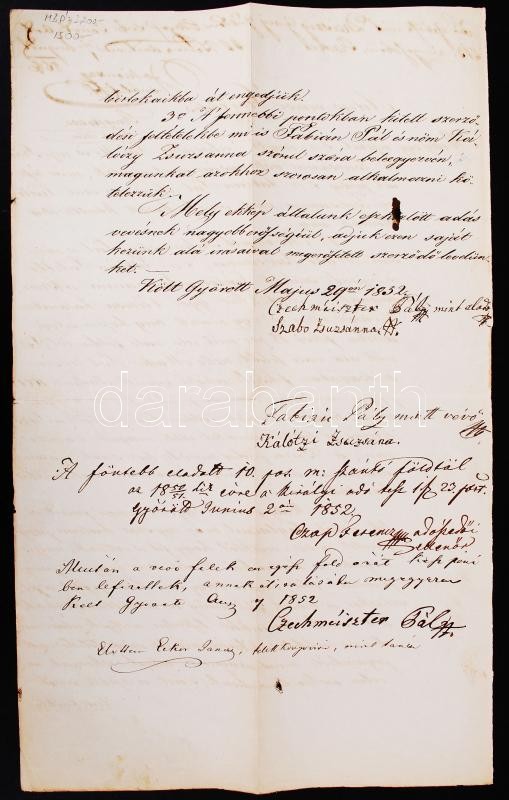 1500
birtokaikba át engedjük.
3o A fennebbi pontokban kitett szerző-
dési feltételekbe mi is Fábián Pál és nőm Ká-
lóczy Zsuzsanna szóval szóra beleegyezvén,
magunkat azokhoz szorosan alkalmazni kö-
telezzük.
Mely ekkép általunk adás
vevésnek nagyobb erősségéül, adjuk ezen saját
kezünk alá irásaival megerősített szerződő levelün-
ket. —
Költ Győrött Majus 29én 1852.
Czechmeiszter Pály mint eladó
Szabo Zsuzsánna
darabanth
Fabián Pály mint vevő
Kálótzi Zsuzsána.
A föntebb eladott 10. pos. m: szántó földtől
az 1852 évre a királyi adó 1f 23
Győrött Junius 2án 1852
Czap Ferencz adószedő
Miután a vevő felek az egész föld árát kész pénz
ben lefizették, annak átírására megegyezem
Kelt Győrött 1852
Czechmeiszter Pály
Előttem Ecker János, mint tanú